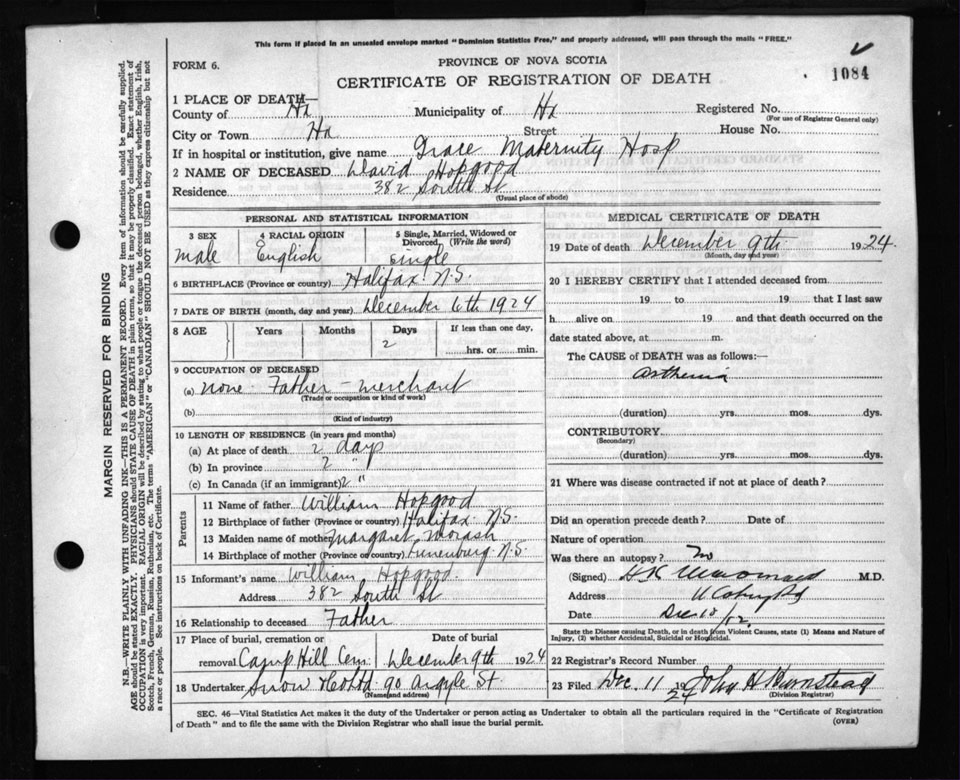 This form if placed in an unsealed envelope marked "Dominion Statistics Free," and properly addressed, will pass through the mails "FREE."
FORM 6.
PROVINCE OF NOVA SCOTIA
CERTIFICATE OF REGISTRATION OF DEATH
1084
1 PLACE OF DEATH—
County of Hx Municipality of Hx Registered No.
(For use of Registrar General only)
City or Town Hx Street House No.
If in hospital or institution, give name Grace Maternity Hosp
2 NAME OF DECEASED David Hopgood
Residence 382 South St
(Usual place of abode)
PERSONAL AND STATISTICAL INFORMATION
3 SEX 4 RACIAL ORIGIN 5 Single, Married, Widowed or Divorced. (Write the word)
male English Single
6 BIRTHPLACE (Province or country) Halifax N.S.
7 DATE OF BIRTH (month, day and year) December 6th 1924
8 AGE Years Months Days If less than one day,
2 hrs. or min.
9 OCCUPATION OF DECEASED
(a) none Father - merchant
(Trade or occupation or kind of work)
(b)
(Kind of industry)
10 LENGTH OF RESIDENCE (in years and months)
(a) At place of death 2 days
(b) In province 2 "
(c) In Canada (if an immigrant) 2 "
Parents
11 Name of father William Hopgood
12 Birthplace of father (Province or country) Halifax N.S.
13 Maiden name of mother Margaret Morash
14 Birthplace of mother (Province or country) Lunenburg N.S.
15 Informant's name William Hopgood.
Address 382 South St
16 Relationship to deceased Father
17 Place of burial, cremation or removal Date of burial
Camp Hill Cem. December 9th 1924
18 Undertaker Snow & Co Ltd 90 Argyle St
(Name and address)
MEDICAL CERTIFICATE OF DEATH
19 Date of death December 9th 1924.
(Month, day and year)
20 I HEREBY CERTIFY that I attended deceased from
19 to 19 that I last saw
h alive on 19 and that death occurred on the
date stated above, at m.
The CAUSE of DEATH was as follows:—
Asthenia
(duration) yrs. mos. dys.
CONTRIBUTORY
(Secondary)
(duration) yrs. mos. dys.
21 Where was disease contracted if not at place of death?
Did an operation precede death? Date of
Nature of operation
Was there an autopsy? no
(Signed) M.D.
Address
Date Dec 10
State the Disease causing Death, or in death from Violent Causes, state (1) Means and Nature of
Injury, (2) whether Accidental, Suicidal or Homicidal.
22 Registrar's Record Number
23 Filed Dec. 11 1924 John H
(Division Registrar)
SEC. 46—Vital Statistics Act makes it the duty of the Undertaker or person acting as Undertaker to obtain all the particulars required in the "Certificate of Registration
of Death" and to file the same with the Division Registrar who shall issue the burial permit.
(OVER)
MARGIN RESERVED FOR BINDING
N.B.—WRITE PLAINLY WITH UNFADING INK—THIS IS A PERMANENT RECORD. Every item of information should be carefully supplied.
AGE should be stated EXACTLY. PHYSICIANS should STATE CAUSE OF DEATH in plain terms, so that it may be properly classified. Exact statement of
OCCUPATION is very important. RACIAL ORIGIN will be described by stating to what people or tongue the deceased person belonged, whether English, Irish,
Scotch, French, German, Russian, Ruthenian, etc. The terms "AMERICAN" or "CANADIAN" SHOULD NOT BE USED as they express citizenship but not
a race or people. See instructions on back of Certificate.